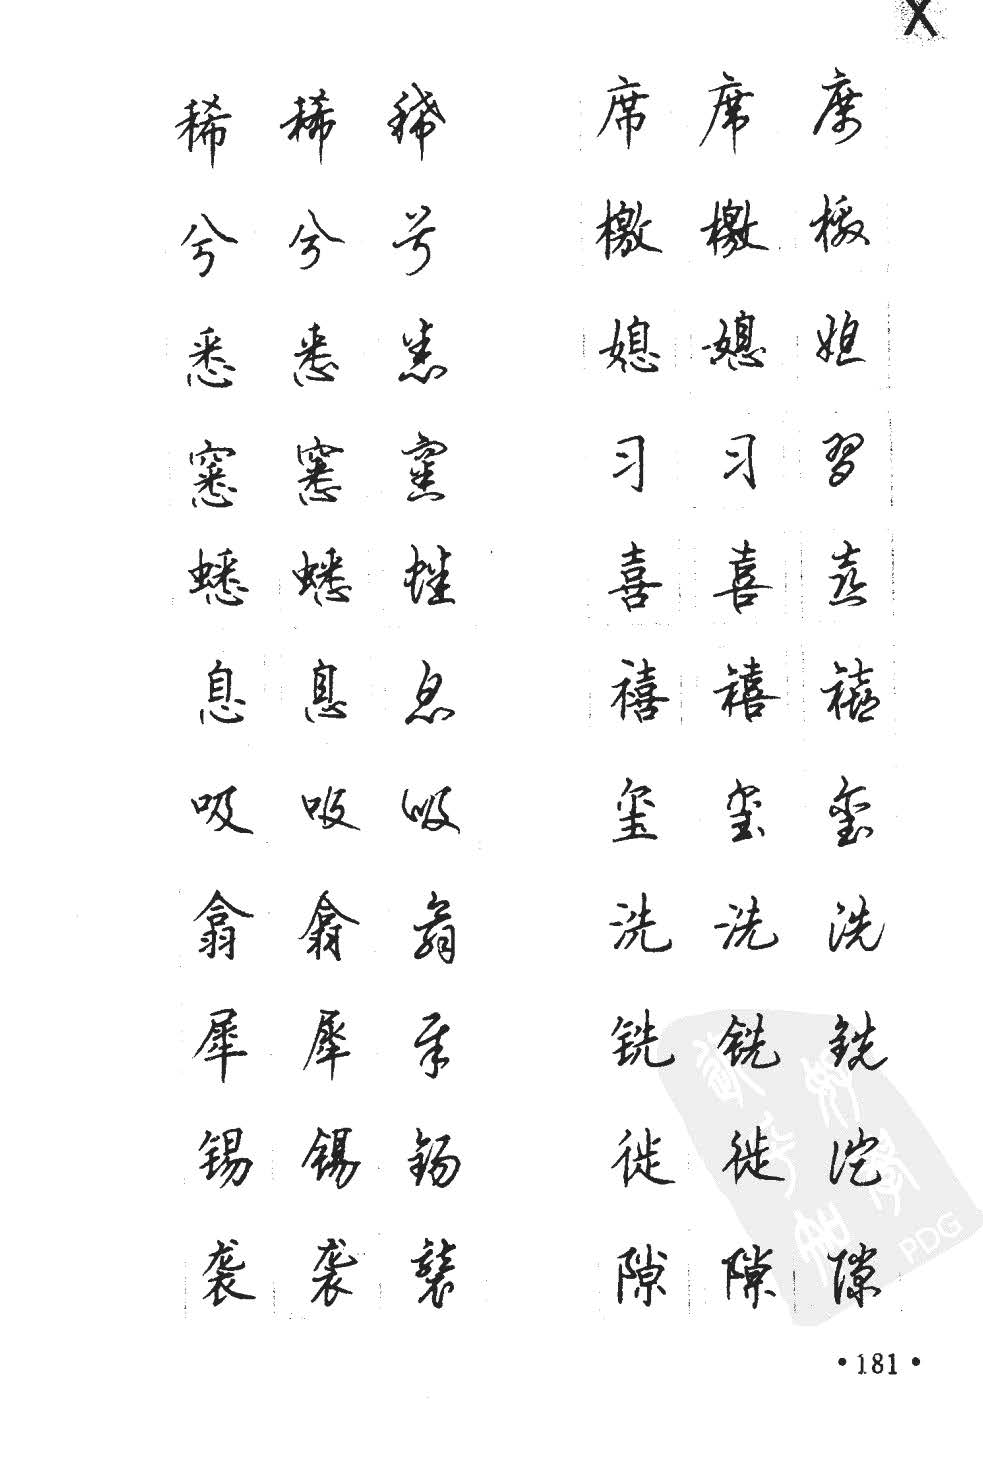 X
稀 稀 稀 席 席 席
兮 兮 兮 檄 檄 檄
悉 悉 悉 媳 媳 媳
窸 窸 窸 习 习 習
蟋 蟋 蟋 喜 喜 喜
息 息 息 禧 禧 禧
吸 吸 吸 玺 玺 玺
翕 翕 翕 洗 洗 洗
犀 犀 犀 铣 铣 铣
锡 锡 锡 徙 徙 徙
袭 袭 襲 隙 隙 隙
PDG
·181·